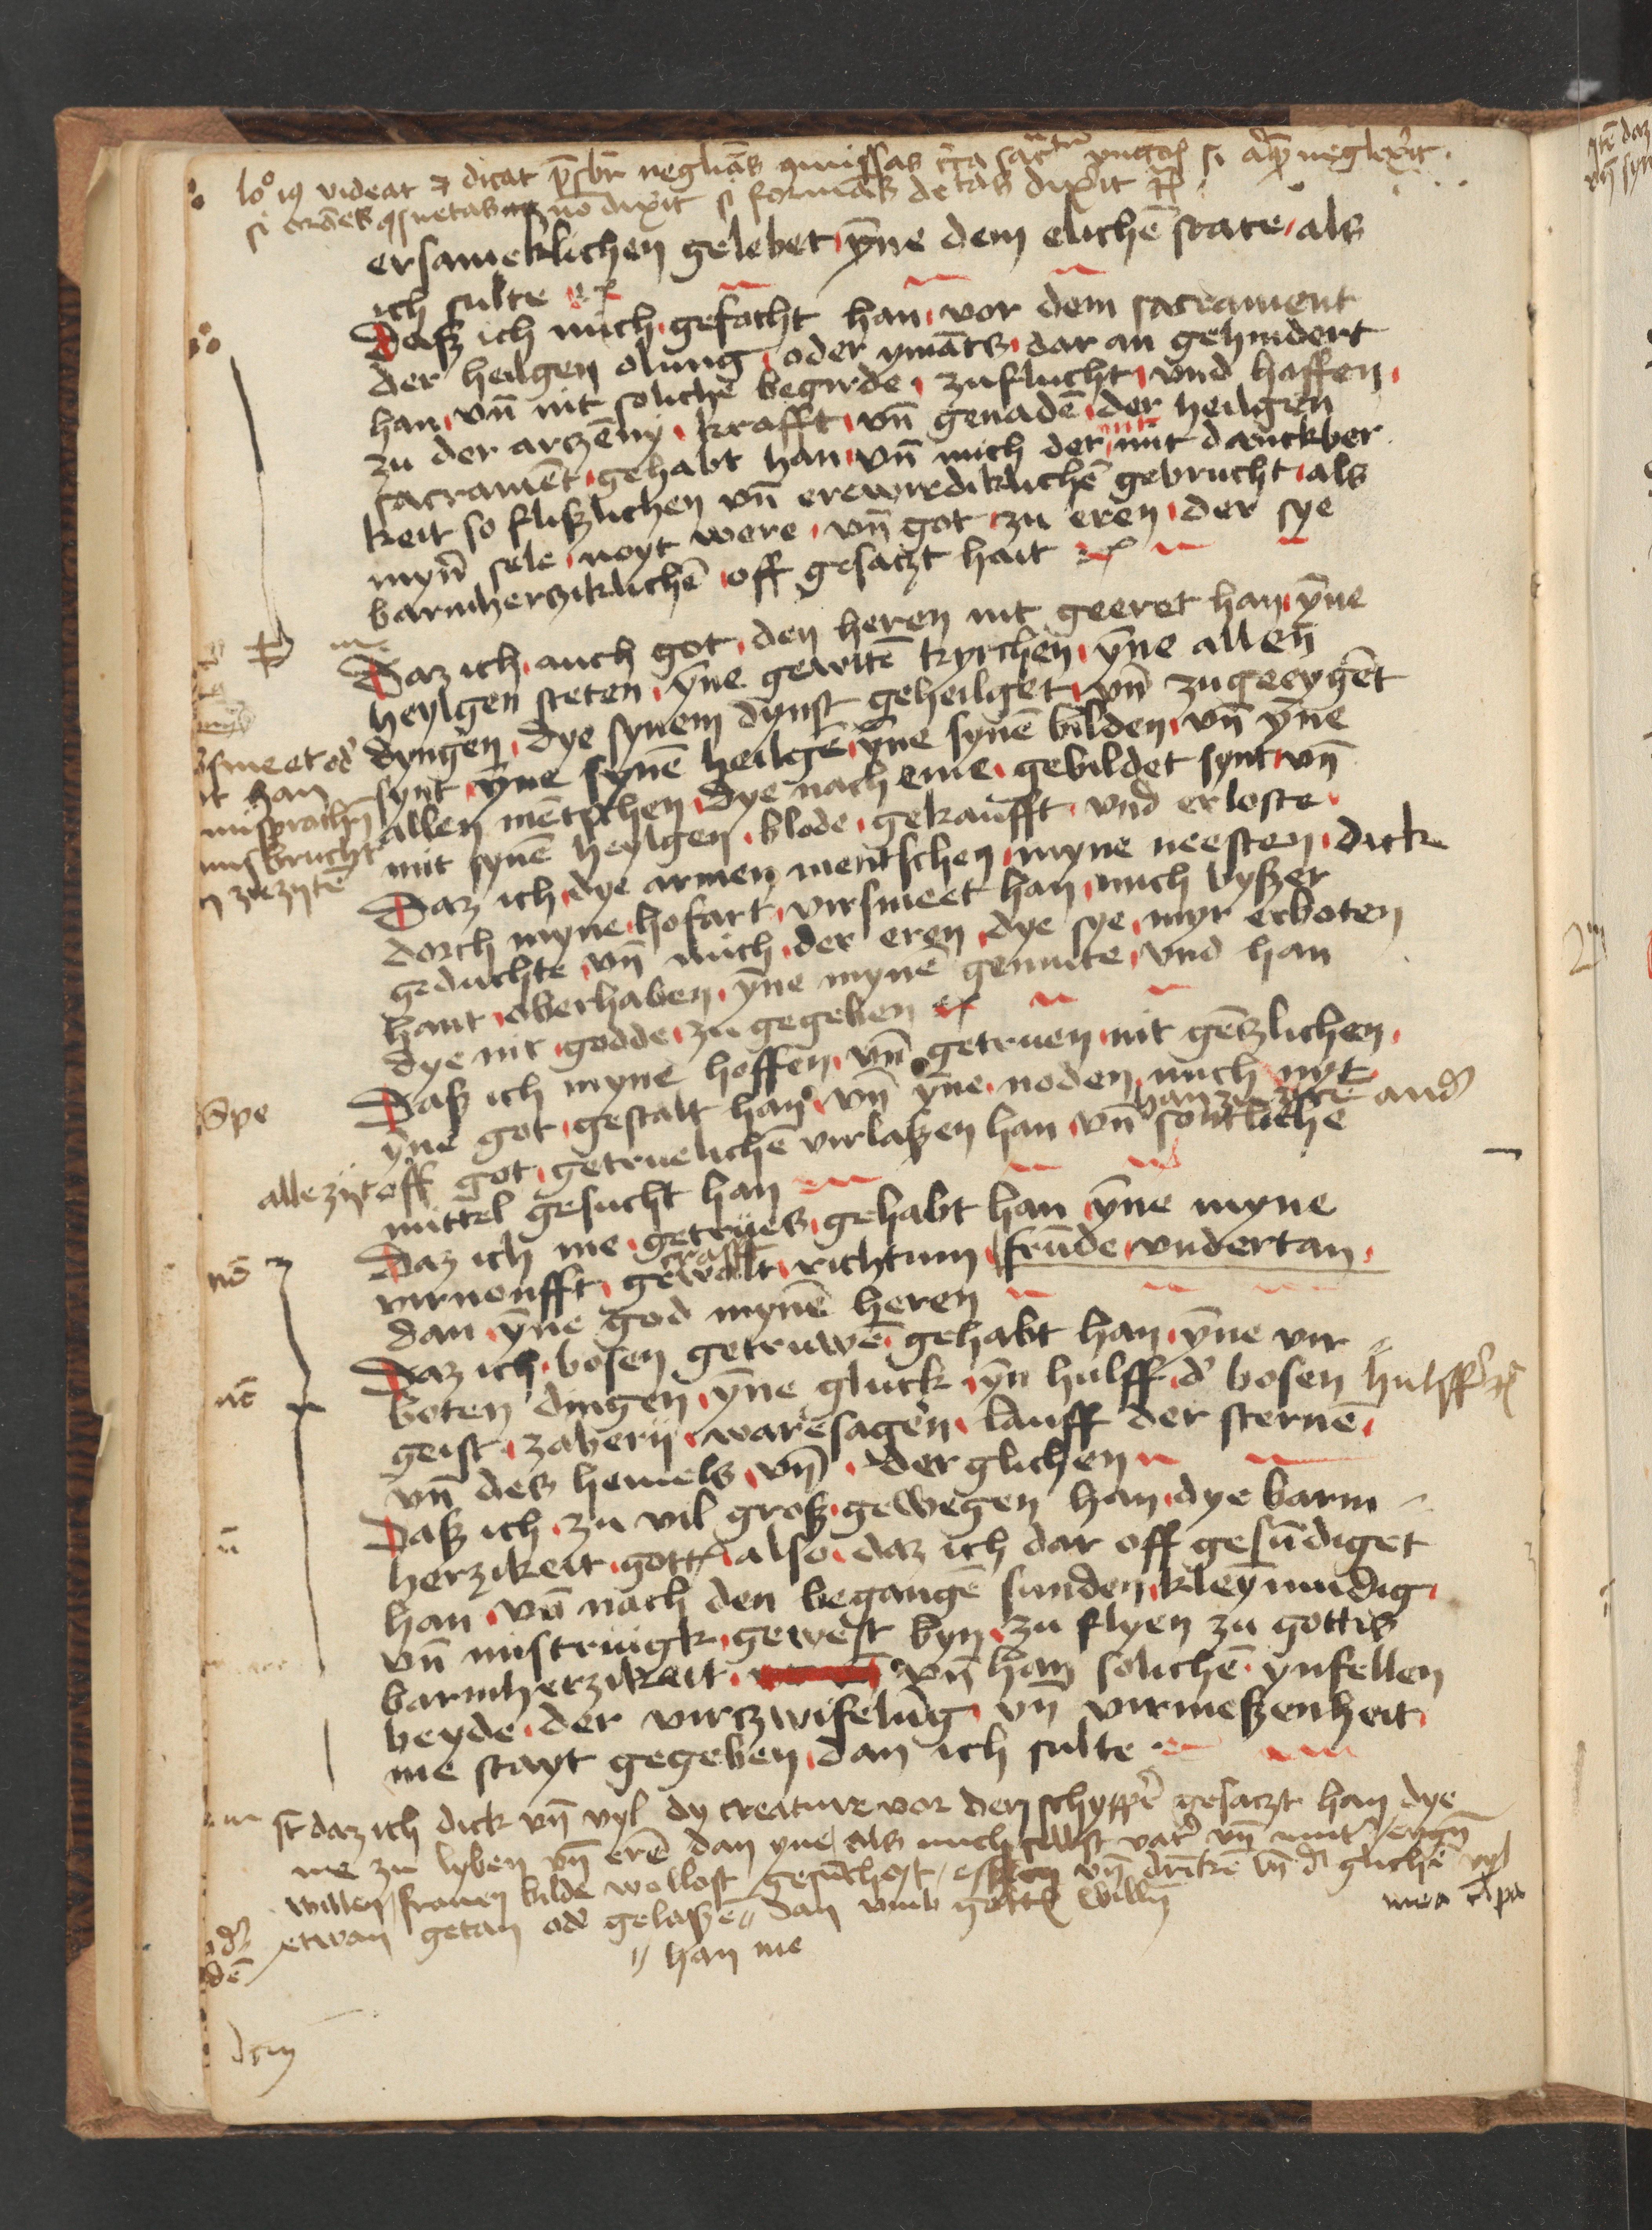 videat et dicat p̄sbr̄ neglīas ꝯmissas
si or̄ones ꝯsuetas nō dixit si formas
ersameklichen gelebet yn̄e dem elichē state als
ich sulte ꝛc
Daſz ich mich gefocht han vor dem sacrament
der heilgen olung oder ymāts dar an gehindert
han vn̄ nit solichē begirde zuflucht vnd hoffen
zu der arczēny krafft vn̄ genadē der heilgen
sacramēt gehabt han vn̄ mich der mit danckber
keit so fliſzlichen vn̄ erewirdiklichē gebrucht als
myn̄ sele noyt were vn̄ got zu eren der sye
barmherziklichē off gesaczt hait ꝛc
Daz ich auch got den heren nit geeret han yn̄e
heylgen steten yn̄e gewitē kyrchen yn̄e allen
dyngen dye synem dynst geheilget vn̄ zugeeygēt
synt yn̄e synē heilgē yn̄e synē bilden vn̄ yn̄e
allen mētschen dye nach eme gebildet synt vn̄
mit synē heylgen blode gekaufft vnd erloste
Daz ich dye armen mentschen myne neesten dick
dorch myne hofart virsmeet han mich byſzer
geduchte vn̄ mich der eren dye sye myr erboten
hant oberhaben yn̄e mynē gemute vnd han
dye nit godde zu gegeben ꝛc
Daſz ich myne hoffen vn̄ getruen nit gētzlichen
Spe
yn̄e got gestalt han vn̄ yn̄e noden mich nyt
allezijt off got getruelichē virlaſzen han vn̄ sontlichē
mittel gesucht han
Daz ich me getrues gehabt han yn̄e myne
crafft
nō
virnonfft gewalt richtum frūde vndertan
dan yn̄e god mynē heren
Daz ich bosen getruwē gehabt han yn̄e vir
boten dingen yn̄e gluck yn̄ hulff d' bosen hulff
geist zaberij waresagen lauff der sternē
vn̄ des hemels vn̄ der glichen
Daſz ich zu vil groſz gewegen han dye barm
herzikeit gotts also daz ich dar off gesūdiget
han vn̄ nach den begangē sunden kleynmudig
vn̄ mistruigk gewest byn zu flyen zu gottis
barmherzikeit vn̄ han solichē ynfellen
beyde der virczwifelūg vn̄ virmeſzenheit
me stayt gegeben dan ich sulte
daz ich dick vn̄ vyl dy creature vor den schypp' gesaczt han dye
me zu lyben vn̄ erē dan yne als mich selbst vat' vn̄ mut'
willen frauen bilde wollost gesūtheyt essen vn̄ drīkē vn̄ d' glichē vyl
etwan getan od' gelaſzē dan vmb gotts willn̄
mea cl̄pa
han me